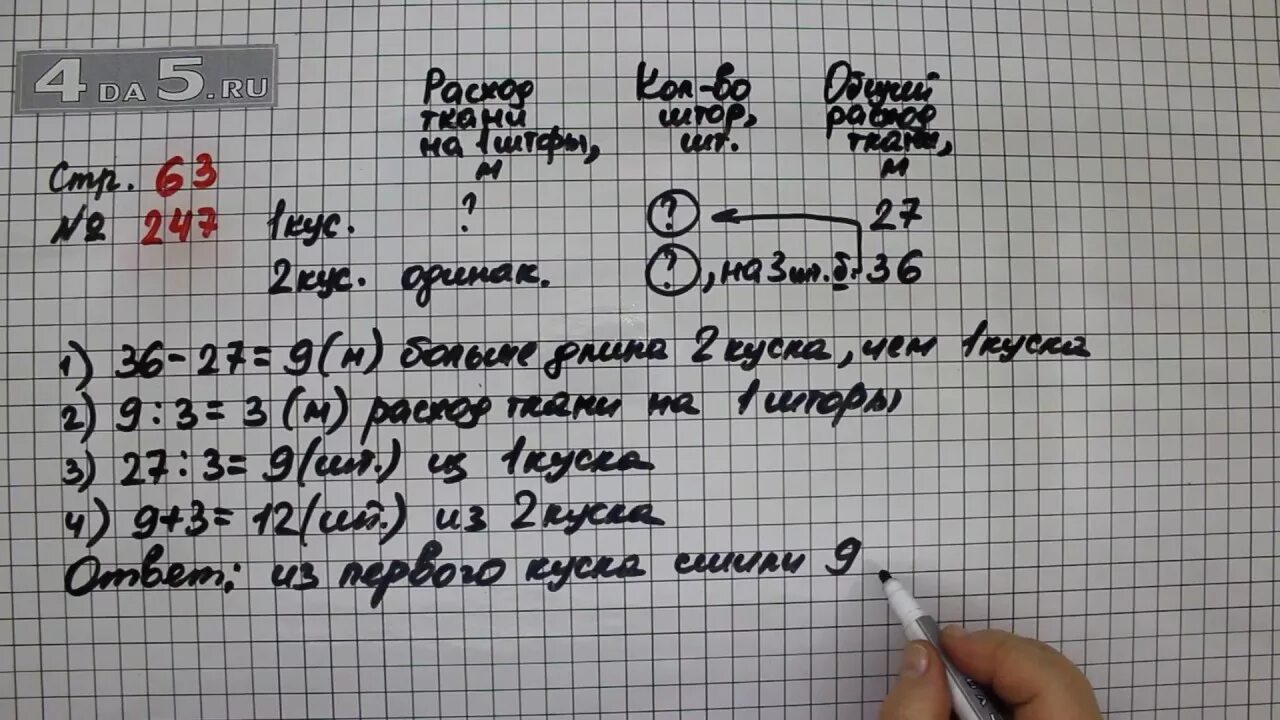 4DA5.RU
Расход Кол-во Общий
ткани штор, расход
на 1 шторы, шт. ткани,
м м
Стр. 63
№ 247
1 кус. ? ? 27
2 кус. одинак. ?, на 3 шт. б. 36
1) 36 - 27 = 9 (м) больше длина 2 куска, чем 1 куска
2) 9 : 3 = 3 (м) расход ткани на 1 шторы
3) 27 : 3 = 9 (шт.) из 1 куска
4) 9 + 3 = 12 (шт.) из 2 куска
Ответ: из первого куска сшили 9